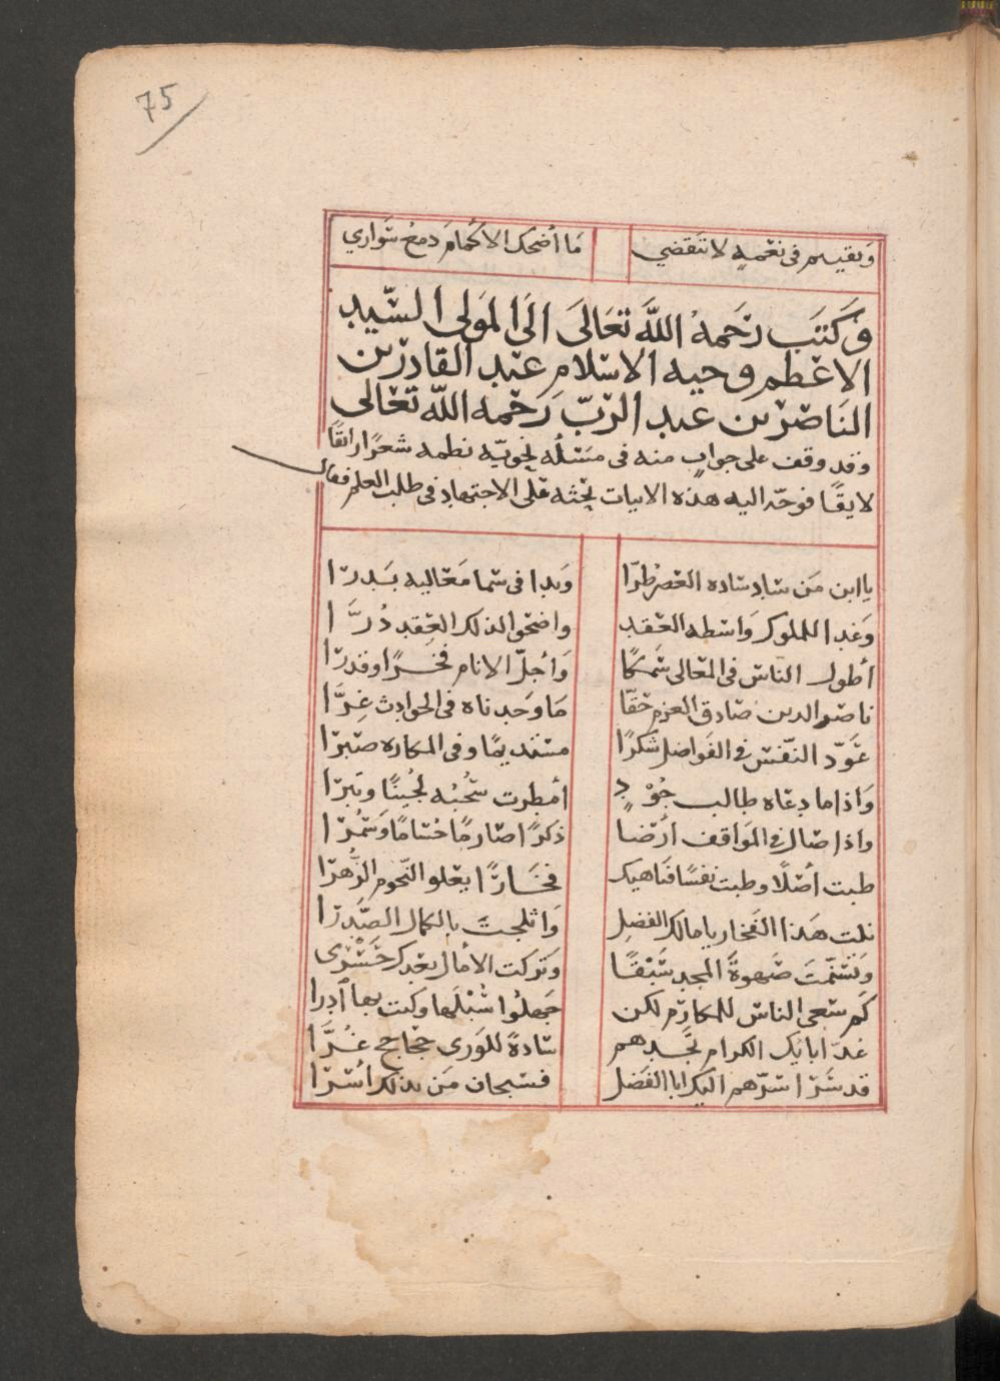 75
وبقيتم في نعمة لا تنقضي ما أضحك الأكمام دمع سواري
وكتب رحمه الله تعالى الى المولى السيد
الاعظم وجيه الاسلام عبد القادر بن
الناصر بن عبد الرب رحمه الله تعالى
وقد وقف على جواب منه في مسئلة نحوية نظمه شعرًا رائقًا
لايقًا فوجّه اليه هذه الابيات يحثه على الاجتهاد في طلب العلم فقال
يا ابن من ساد ساده العصر طرّا وبدا في سما معاليه بدرا
وغدا للملوك واسطه العقد واضحوا لذلك العقد دُرَّا
أطول الناس في المعالي سمكًا وأجلّ الانام فخرًا وقدرا
ناصر الدين صادق العزم حقّا ما وجدناه في الحوادث غِرَّا
عَوّد النّفس في الفواضل شكرًا مستديمًا وفي المكاره صبرا
واذا ما دعاه طالب جُوْدٍ أمطرت سُحْبُه لُجينًا وتبرا
واذا صال في المواقف ارضا ذكرًا صارمًا حسامًا وسُمْرا
طبت أصلًا وطبت نفسًا فناهيك فخارًا يعلو النّجوم الزُّهرا
نلت هذا الفخار يا مالك الفضل واثلجت بالكمال الصّدرا
وتسنّمتَ صهوةَ المجد سَبْقًا وتركت الأمال بعدك حَسْرى
كم سعى الناس للمكارم لكن جهلوا سُبْلَها وكنت بها أدرا
غدّ ابايك الكرام تجدهم سادةً للورى حجاجح غُرَّا
قد سَرَا سرّهم اليك ابا الفضل فسبحان من بذلك أسْرَا